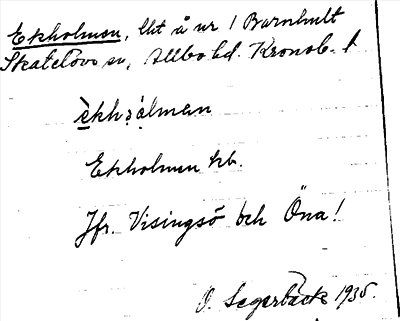 Ekholmen, Utå nr 1 Barnhult
Skatelövs sn, Allbo hd. Kronob. l
èkhɔ̀lmən
Ekholmen kb.
Jfr. Visingsö och Öna!
O. Segerbäck 1935.